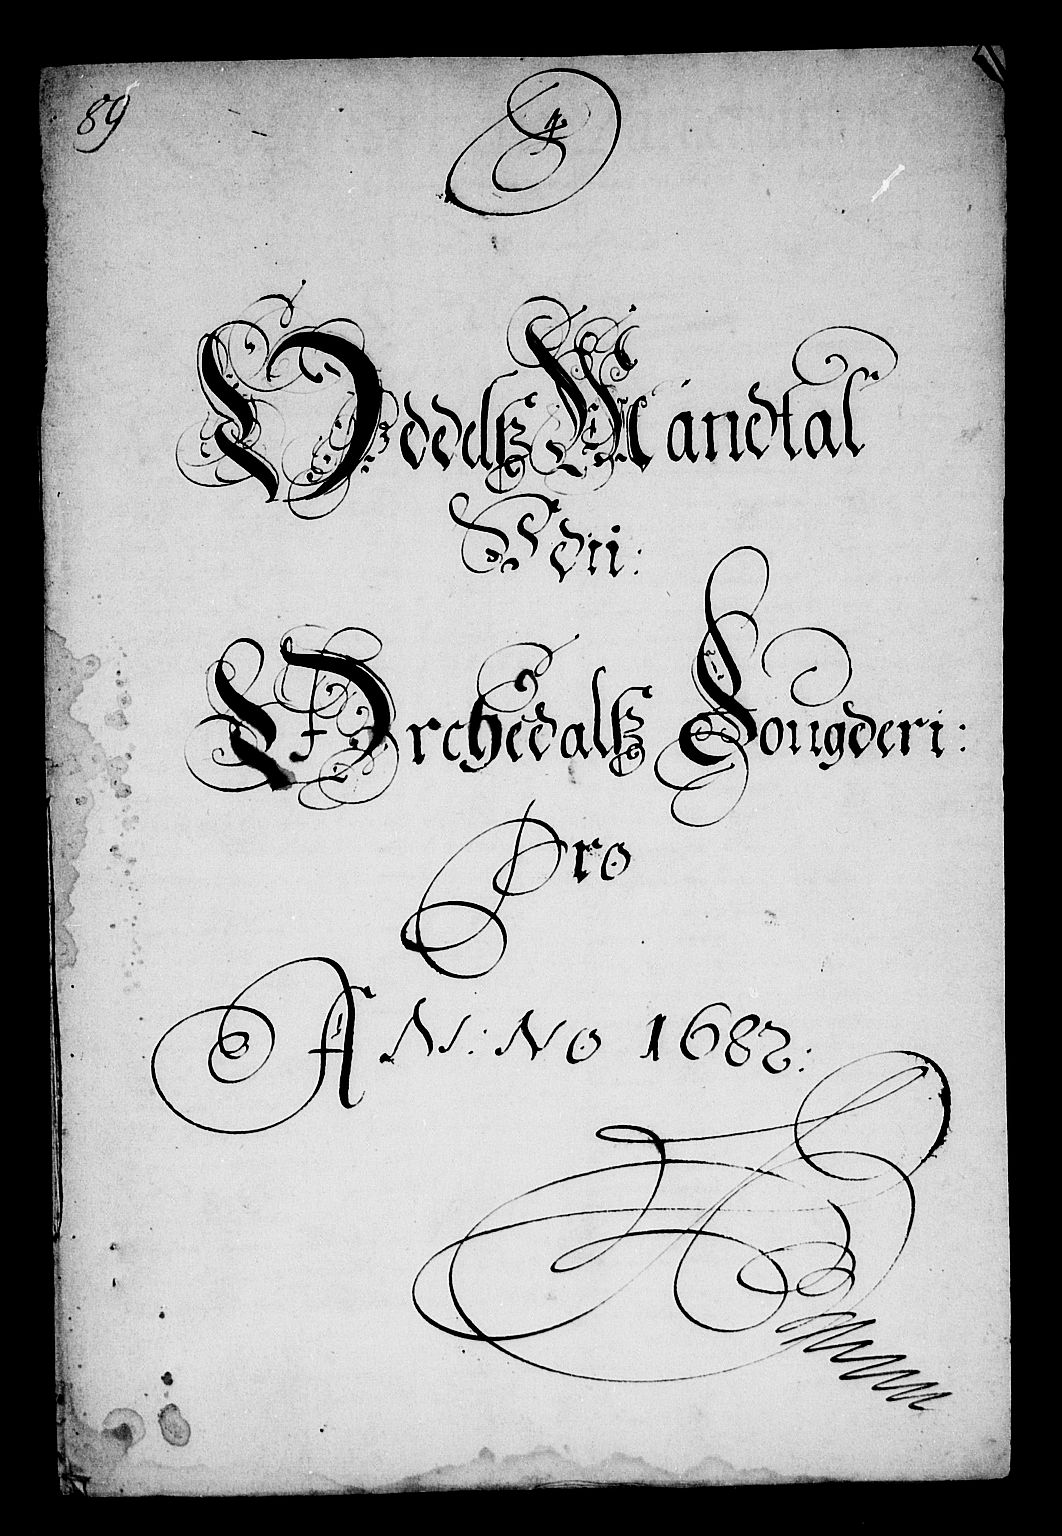 89
A
Oddelß Mandtal
Udi:
Orchedalß Fougderi:
Pro
AN: No 1682: